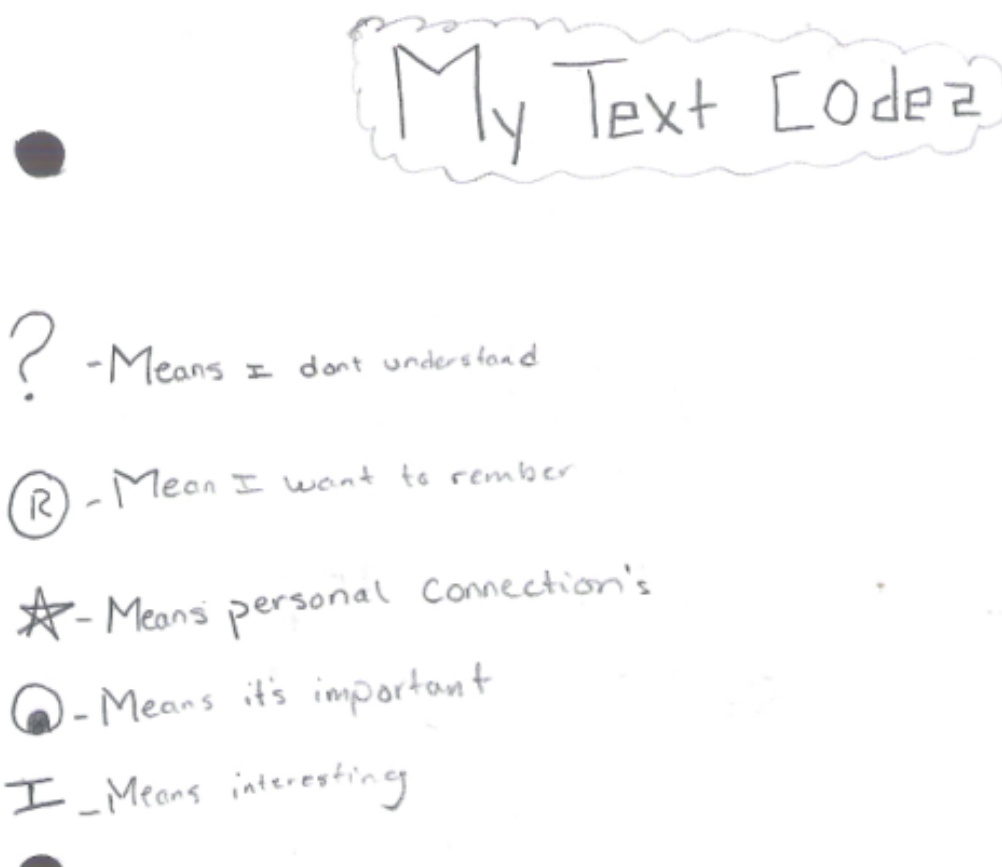 My Text Codez
? - Means I dont understand
Ⓡ - Mean I want to rember
☆ - Means personal connection's
- Means it's important
I - Means interesting